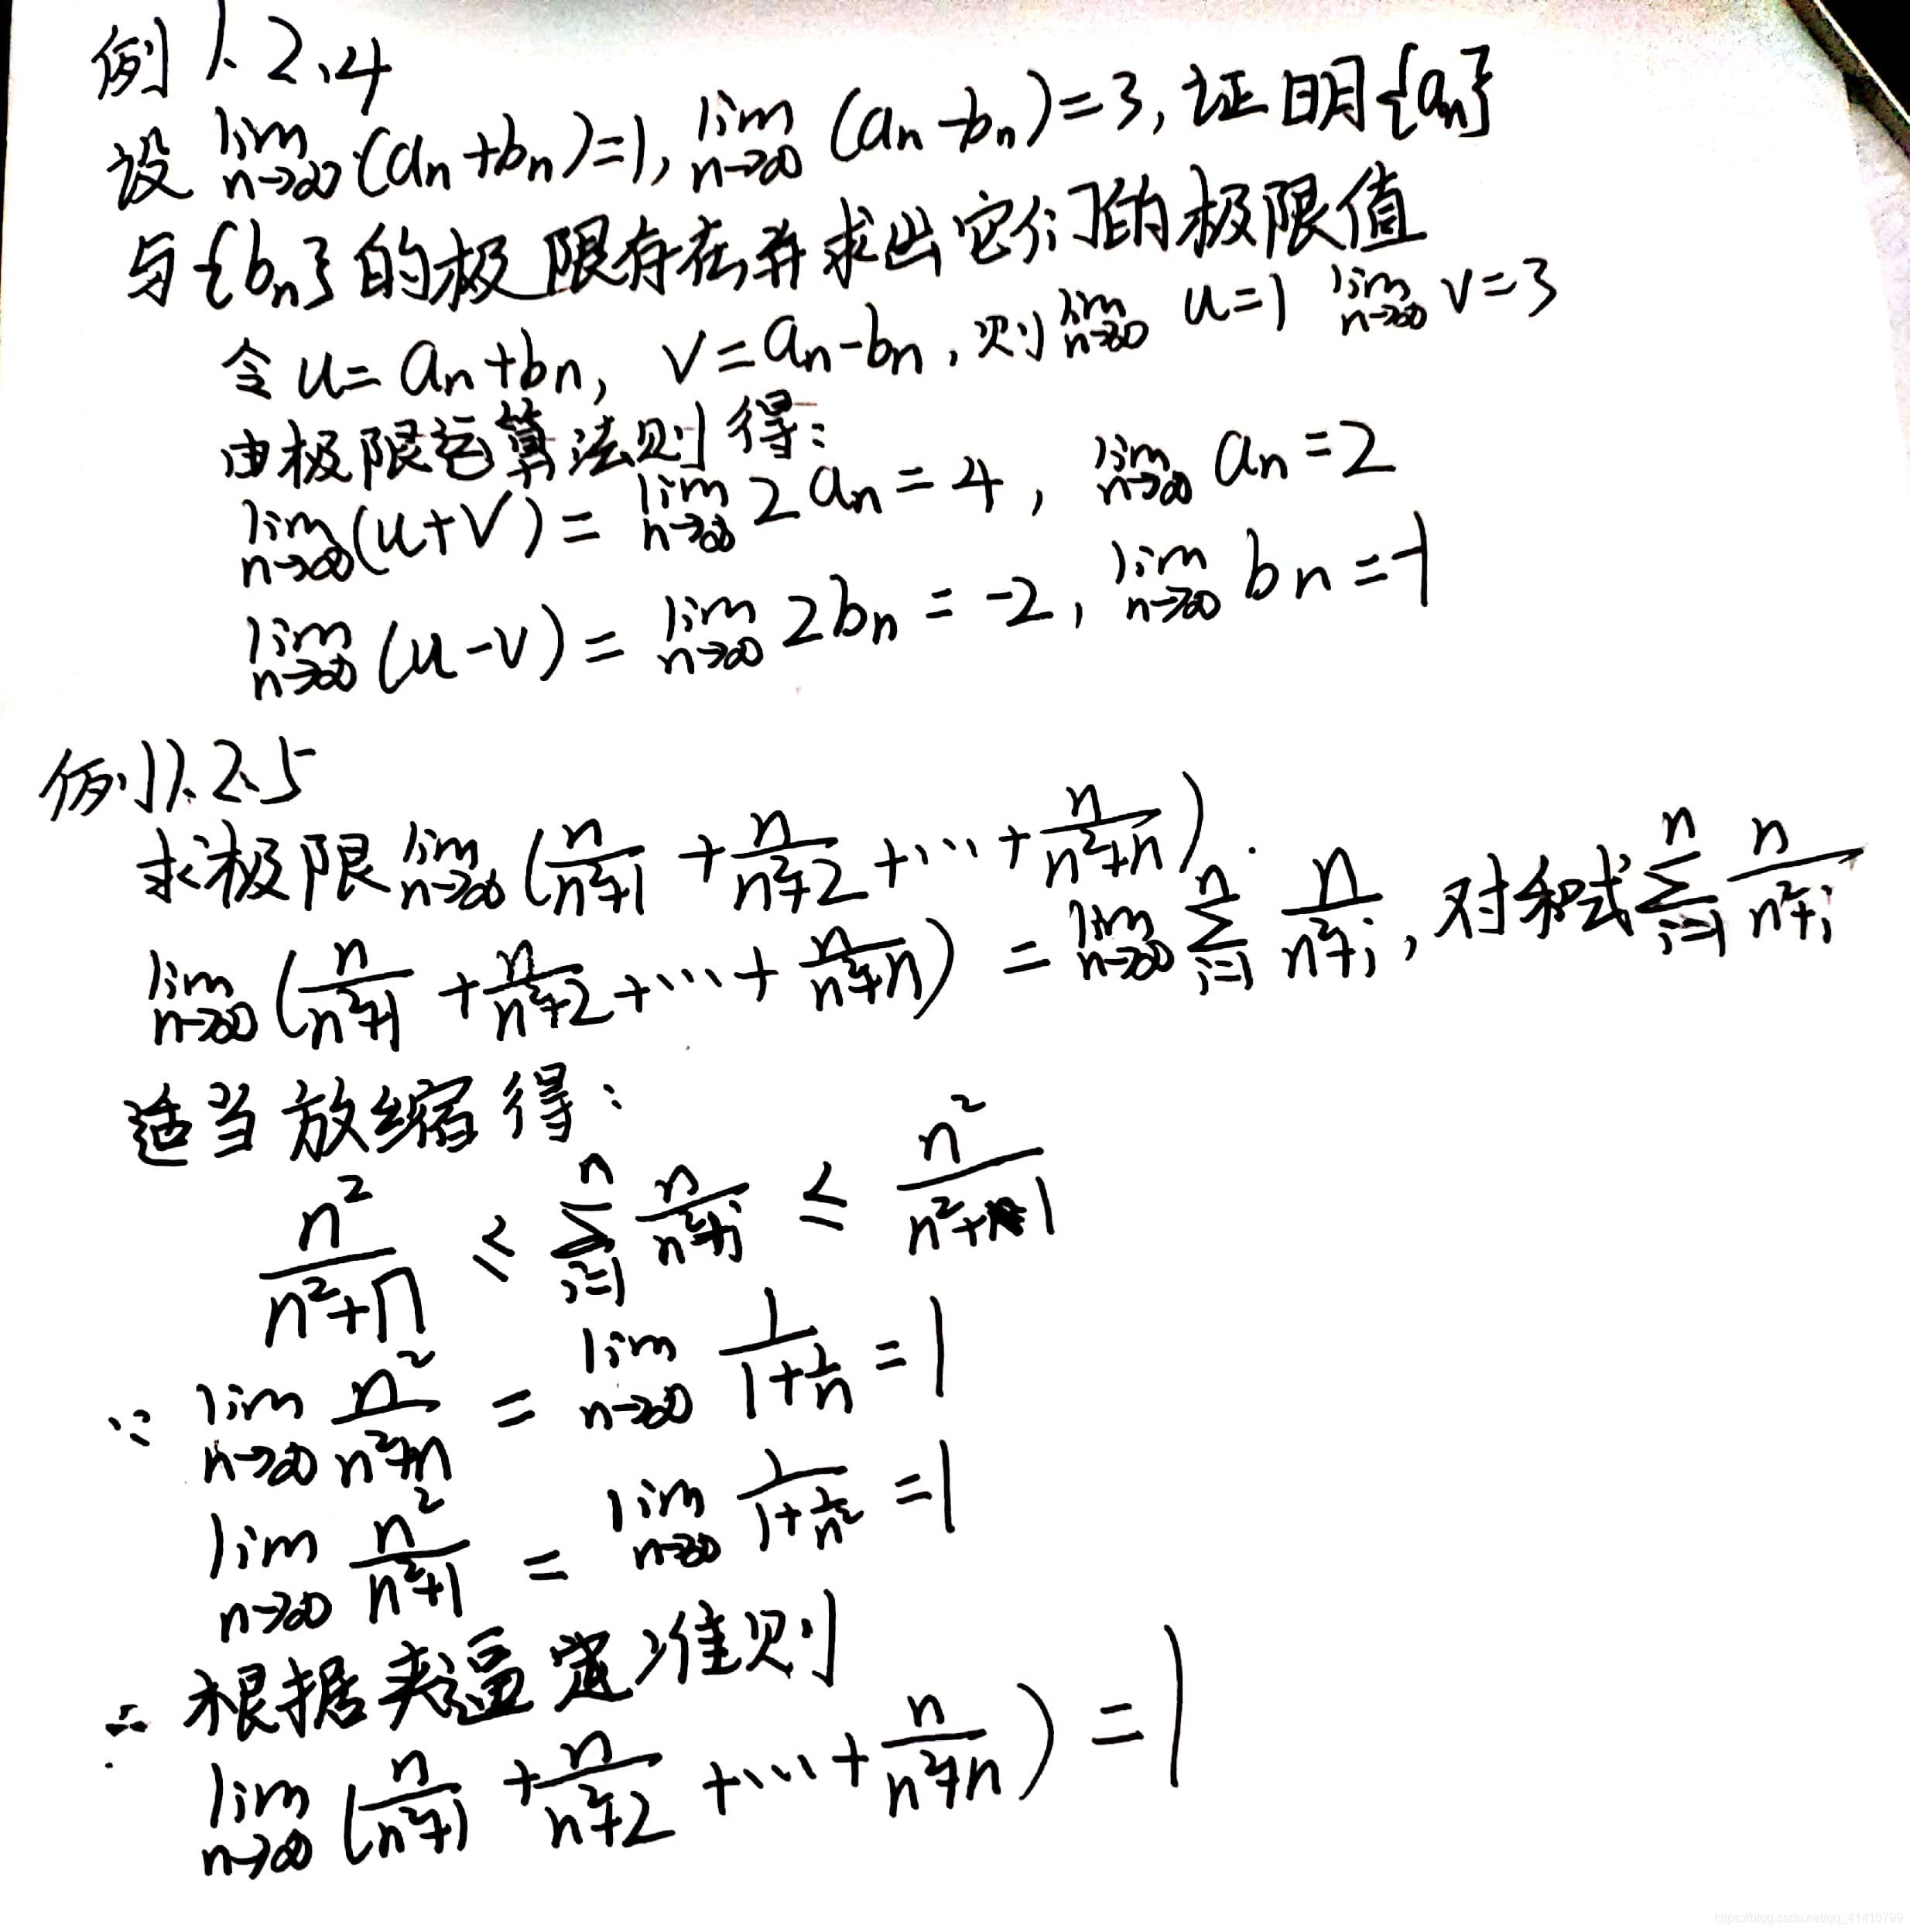 例1.2.4
设 lim n→∞ (an+bn)=1, lim n→∞ (an-bn)=3, 证明{an}
与{bn}的极限存在并求出它们的极限值
令 u=an+bn, v=an-bn, 则 lim n→∞ u=1 lim n→∞ v=3
由极限运算法则得:
lim n→∞ (u+v) = lim n→∞ 2an = 4, lim n→∞ an = 2
lim n→∞ (u-v) = lim n→∞ 2bn = -2, lim n→∞ bn = -1
例1.2.5
求极限 lim n→∞ (n/(n²+1) + n/(n²+2) + ⋯ + n/(n²+n)).
lim n→∞ (n/(n²+1) + n/(n²+2) + ⋯ + n/(n²+n)) = lim n→∞ ∑ i=1 n n/(n²+i), 对和式 ∑ i=1 n n/(n²+i)
适当放缩得:
n²/(n²+n) ≤ ∑ i=1 n n/(n²+i) ≤ n²/(n²+1)
∵ lim n→∞ n²/(n²+n) = lim n→∞ 1/(1+1/n) = 1
lim n→∞ n²/(n²+1) = lim n→∞ 1/(1+1/n²) = 1
∴ 根据夹逼定准则
lim n→∞ (n/(n²+1) + n/(n²+2) + ⋯ + n/(n²+n)) = 1
https://blog.csdn.net/qq_41410799